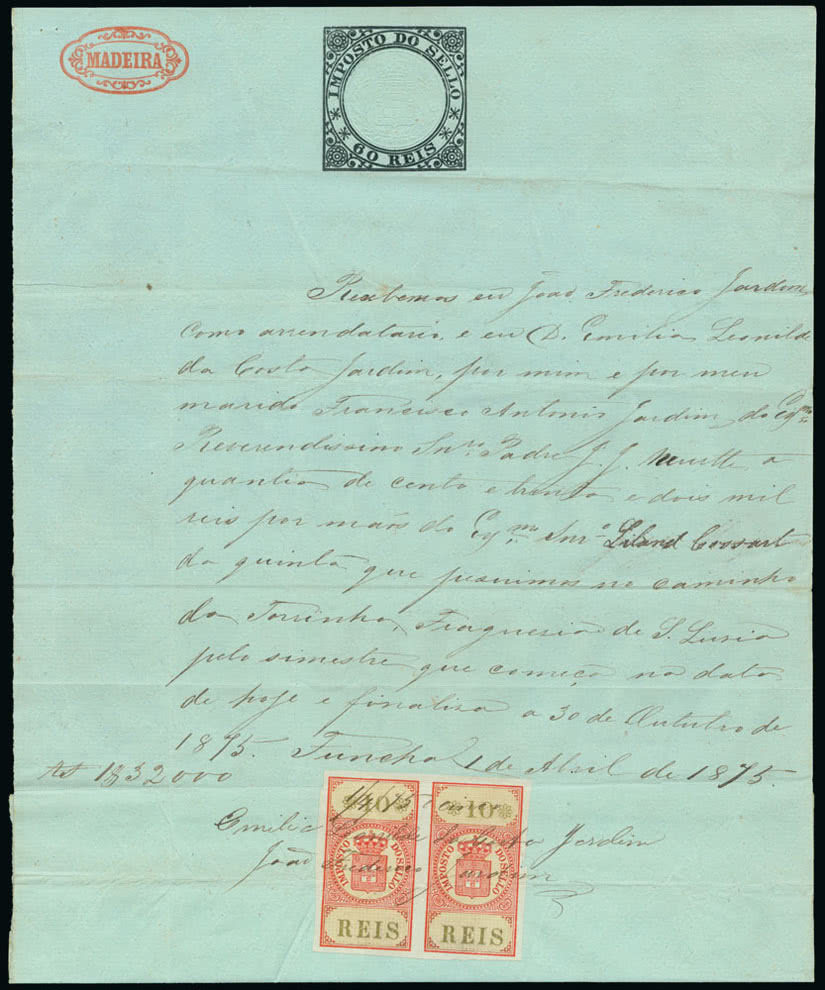 MADEIRA
IMPOSTO DO SELLO
60 REIS
Recebemos eu João Frederico Jardim
como arrendatario, e eu D. Emilia Leonilde
da Costa Jardim, por mim e por meu
marido Francisco Antonio Jardim, do Exmo
Reverendissimo Snr. Padre J. J.
quantia de cento e trinta e dois mil
reis por mãos do Exmo Snro Leland Cossart
da quinta que possuimos no caminho
da Torrinha, Freguesia de S. Lusia
pelo simestre que começa na data
de hoje e finalisa a 30 de Outubro de
1875. Funchal 1 de Abril de 1875.
132000
1/4/75
Emilia Leonilde da Costa Jardim
João Frederico Jardim
10
IMPOSTO DO SELLO
REIS
10
IMPOSTO DO SELLO
REIS